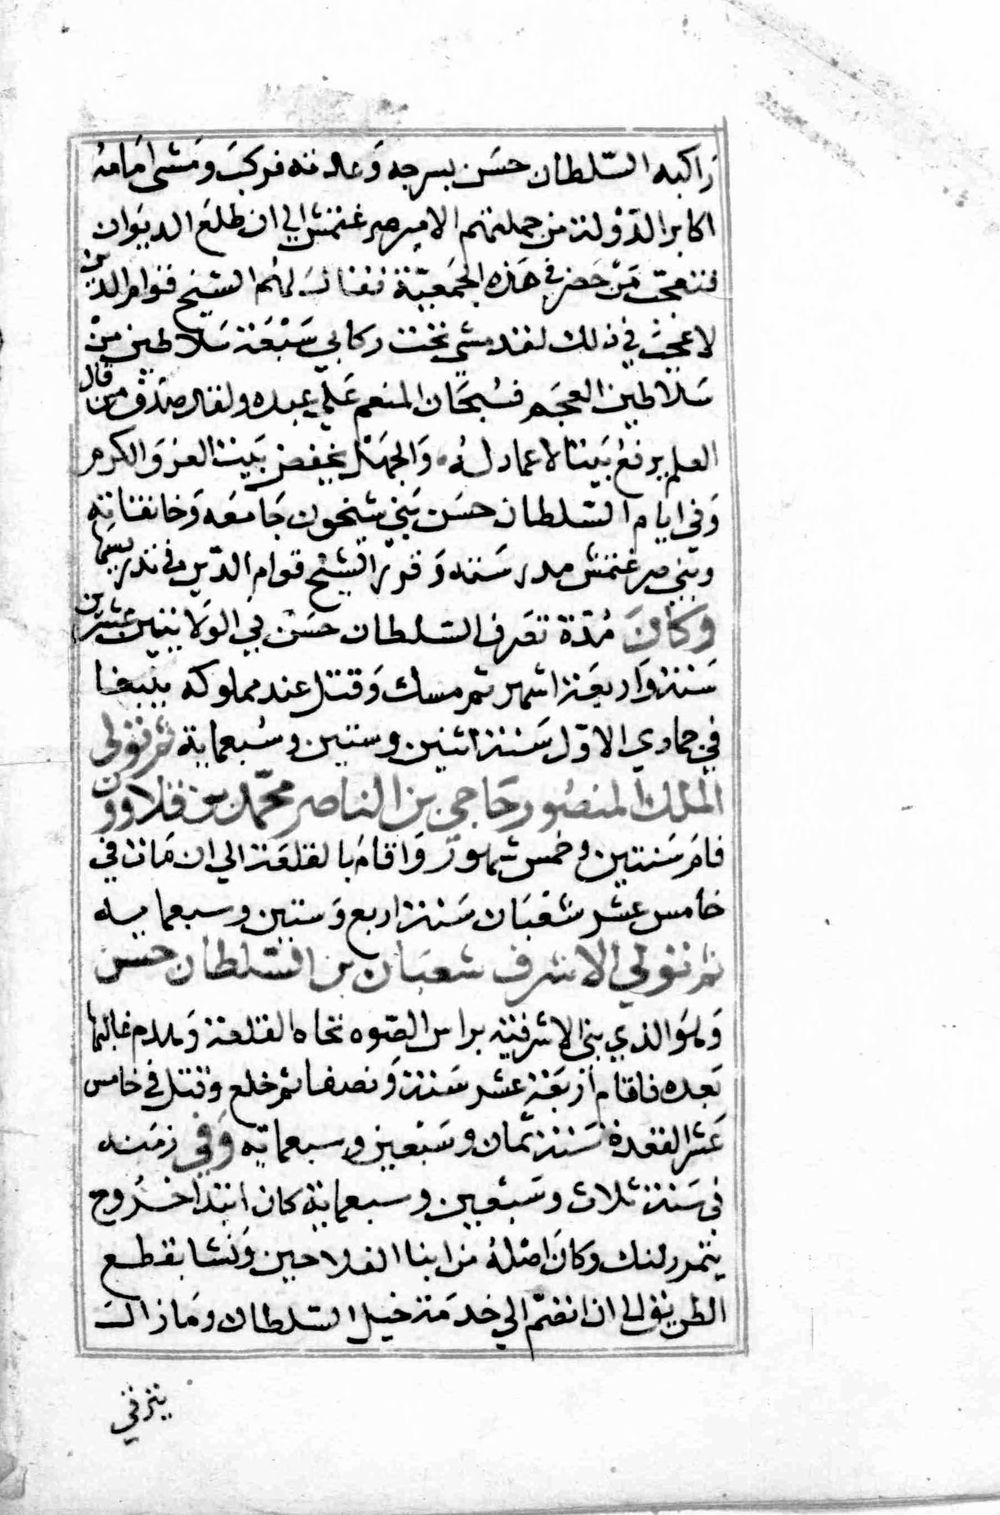 راكبه السلطان حسن بسرجه وعدته فركب ومشى امامه
اكابر الدولة من جملتهم الامير صرغتمش الي ان طلع الديوان
فتعجب من حضر في هذه الجمعية فقال لهم الشيخ قوام الدين
لا عجب في ذلك لقد مشي تحت ركابي سبعة سلاطين من
سلاطين العجم فسبحان المنعم علي عبده ولقد صدق من قال
العلم يرفع بيتا لا عماد له والجهل يخفض بيت العز والكرم
وفي ايام السلطان حسن بني شيخون جامعه وخانقاته
وبني صرغتمش مدرسته وقرر الشيخ قوام الدين في تدريسها
وكان مدة تصرف السلطان حسن في الولايتين عشرين
سنة واربعة اشهر ثم مسك وقتل عند مملوكه يلبغا
في جمادي الاول سنة اثنين وستين وسبعماية ثم تولى
الملك المنصور حاجي بن الناصر محمد بن قلاوون
قام سنتين وخمس شهور واقام بالقلعة الي ان مات في
خامس عشر شعبان سنة اربع وستين وسبعمايه
ثم تولي الاشرف شعبان بن السلطان حسن
وهو الذي بني الاشرفية براس الصوه تجاه القلعة وهدم غالبها
بعده فاقام اربعة عشر سنة ونصفا ثم خلع وقتل في خامس
عشر القعدة سنة ثمان وسبعين وسبعماية وفي زمنه
في سنة ثلاث وسبعين وسبعماية كان ابتدا خروج
يتمرلنك وكان اصله من ابنا الفلاحين ونشا بقطع
الطريق الي ان انضم الي خدمة خيل السلطان وما زال
يترقي